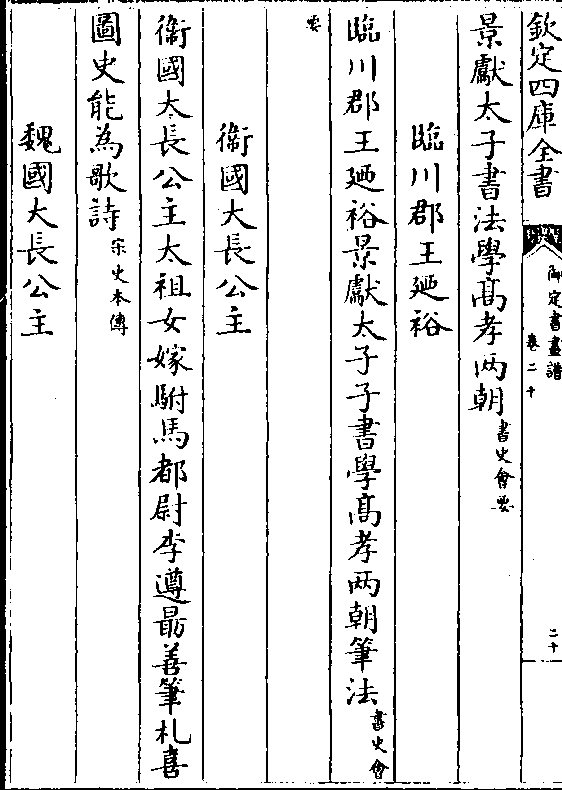 欽定四庫全書
御定書畫譜
卷二十
二十
景獻太子書法學髙孝兩朝書史會要
臨川郡王廼裕
臨川郡王廼裕景獻太子子書學髙孝兩朝筆法書史會
要
衞國大長公主
衞國大長公主太祖女嫁駙馬都尉李遵最善筆札喜
圖史能為歌詩宋史本傳
魏國大長公主